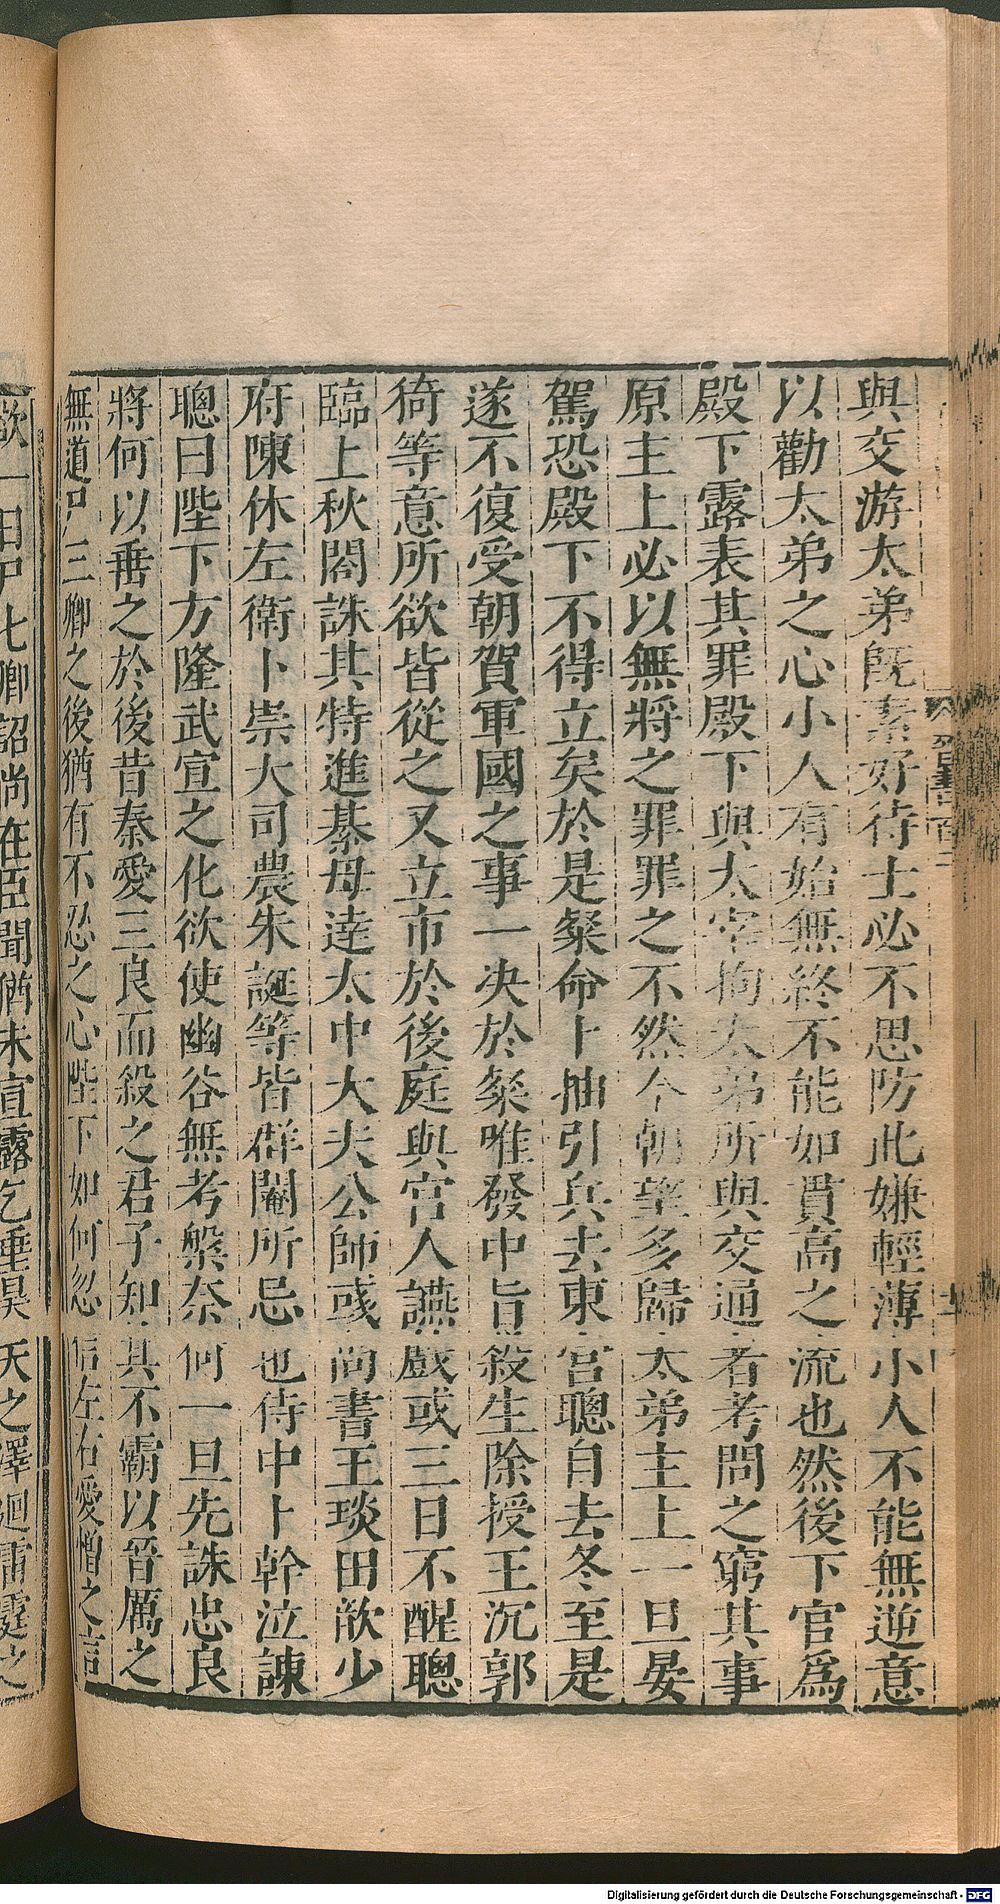 與交游太弟旣素好待士必不思防此嫌輕薄小人不能無逆意
以勸太弟之心小人有始無終不能如貫高之流也然後下官爲
殿下露表其罪殿下與太宰拘太弟所與交通者考問之窮其事
原主上必以無將之罪罪之不然今朝望多歸太弟主上一旦晏
駕恐殿下不得立矣於是粲命卜抽引兵去東宮聰自去冬至是
遂不復受朝賀軍國之事一決於粲唯發中旨殺生除授王沉郭
猗等意所欲皆從之又立市於後庭與宮人讌戲或三日不醒聰
臨上秋閤誅其特進綦毋達太中大夫公師彧尚書王琰田歆少
府陳休左衛卜崇大司農朱誕等皆群閹所忌也侍中卜幹泣諫
聰曰陛下方隆武宣之化欲使幽谷無考槃奈何一旦先誅忠良
將何以垂之於後昔秦愛三良而殺之君子知其不霸以晉厲之
無道尸三卿之後猶有不忍之心陛下如何忍信左右愛憎之言
欲一日尸七卿詔尚在臣聞猶未宣露乞垂昊天之澤迴雷霆之
Digitalisierung gefördert durch die Deutsche Forschungsgemeinschaft - DFG